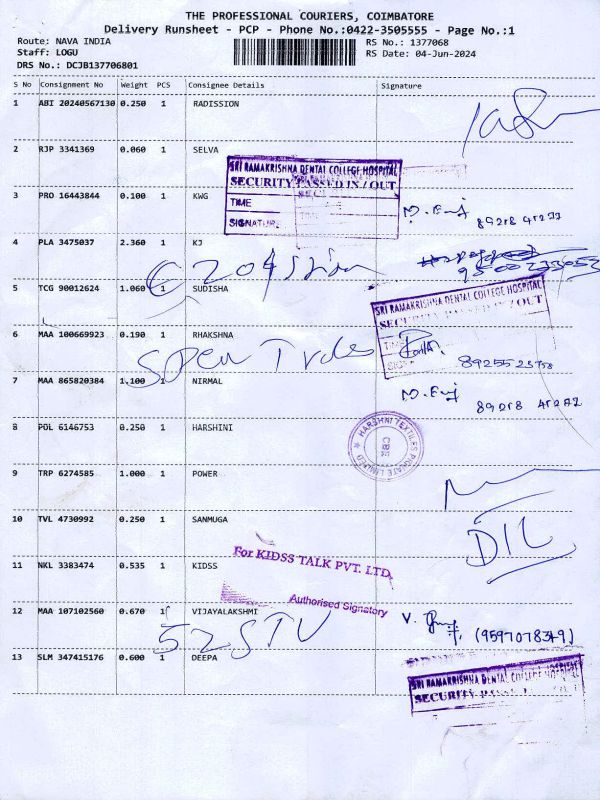 THE PROFESSIONAL COURIERS, COIMBATORE
Delivery Runsheet - PCP - Phone No.:0422-3505555 - Page No.:1
Route: NAVA INDIA
Staff: LOGU
DRS No.: DCJB137706801
RS No.: 1377068
RS Date: 04-Jun-2024
S No Consignment No Weight PCS Consignee Details Signature
1 ABI 20240567130 0.250 1 RADISSION
2 RJP 3341369 0.060 1 SELVA
SRI RAMAKRISHNA DENTAL COLLEGE HOSPITAL
SECURITY PASSED IN / OUT
TIME
SIGNATURE
3 PRO 16443844 0.100 1 KWG
4 PLA 3475037 2.360 1 KJ
5 TCG 90012624 1.060 1 SUDISHA
SRI RAMAKRISHNA DENTAL COLLEGE HOSPITAL
SECURITY PASSED IN / OUT
6 MAA 100669923 0.190 1 RHAKSHNA
7 MAA 865820384 1.100 1 NIRMAL
8 POL 6146753 0.250 1 HARSHINI
HARSHNI TEXTILES PRIVATE LIMITED
CBE
9 TRP 6274585 1.000 1 POWER
10 TVL 4730992 0.250 1 SANMUGA
11 NKL 3383474 0.535 1 KIDSS
For KIDSS TALK PVT. LTD.
Authorised Signatory
12 MAA 107102560 0.670 1 VIJAYALAKSHMI
V.
(9597078349)
13 SLM 347415176 0.600 1 DEEPA
SRI RAMAKRISHNA DENTAL COLLEGE HOSPITAL
SECURITY PASSED